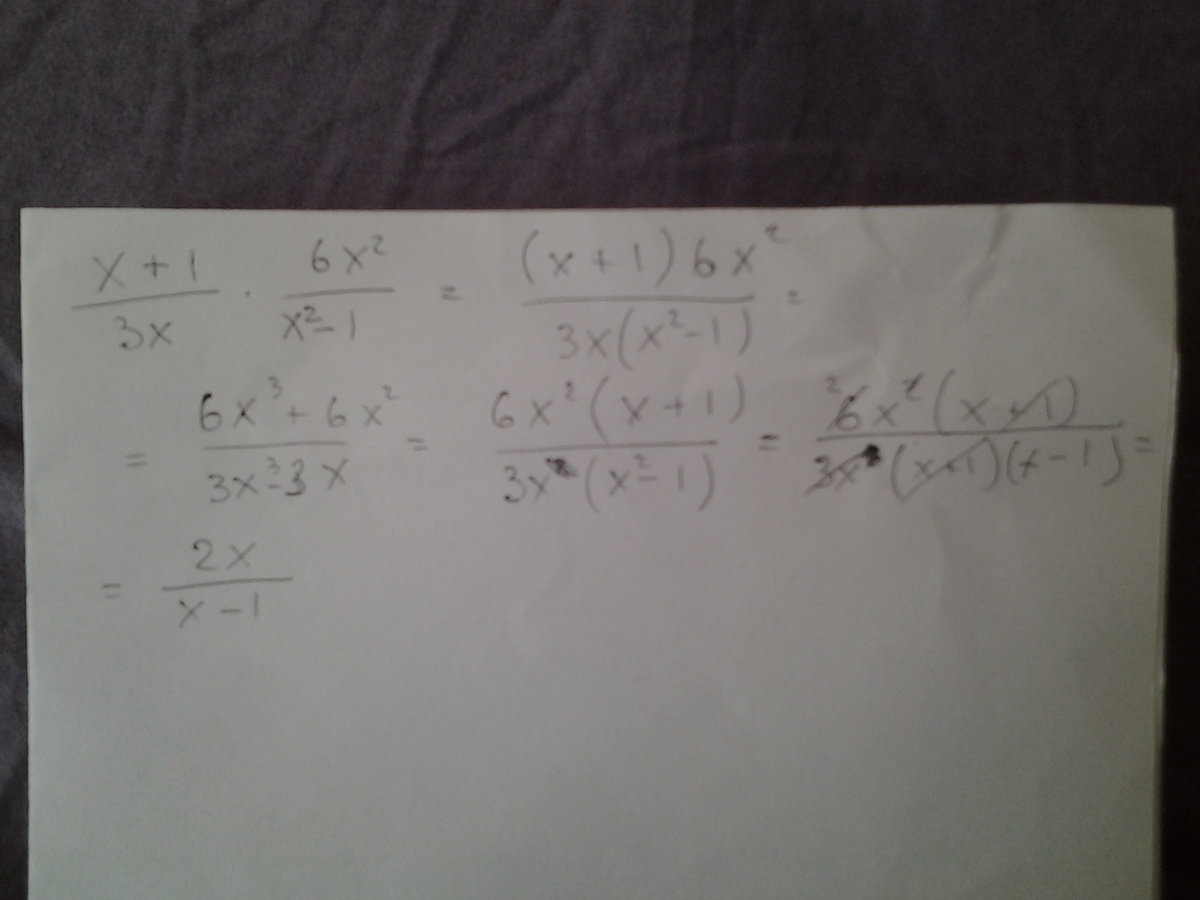 (x + 1)/(3x) · (6x²)/(x² - 1) = ((x + 1) 6x²)/(3x(x² - 1)) =
= (6x³ + 6x²)/(3x³ - 3x) = (6x²(x + 1))/(3x(x² - 1)) = (6x²(x + 1))/(3x(x + 1)(x - 1)) =
= (2x)/(x - 1)